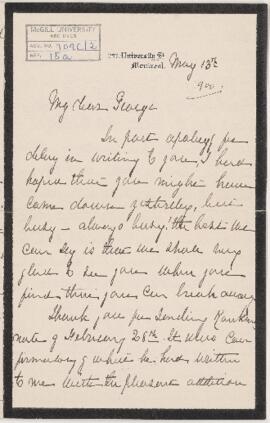 McGILL UNIVERSITY
ARCHIVES
ACC. NO. 909C/2
REF. 15a
University St
Montreal.
May 13th
900
My dear George
In part apology for
delay in writing to you, I had
hoped that you might have
come down yesterday, but
busy - always busy. the best we
can say is that we shall be very
glad to see you when you
find that you can break away
Thank you for sending
note of February 28th. It was con
firmatory of what he had written
to me with the pleasant addition